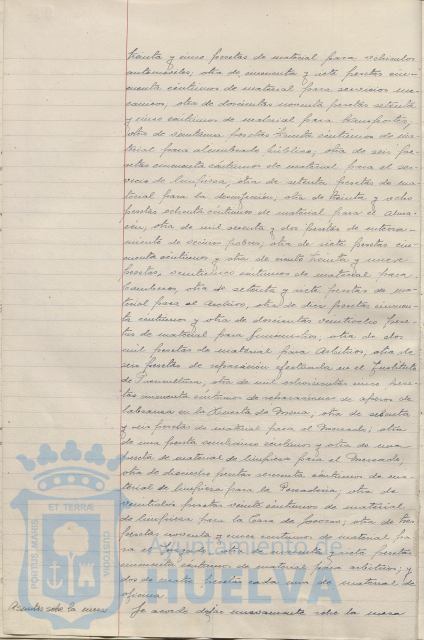 treinta y cinco pesetas de material para vehículos
automóviles; otra de cincuenta y siete pesetas cin-
cuenta céntimos de material para servicios me-
cánicos, otra de doscientas noventa pesetas setenta
y cinco céntimos de material para transportes;
otra de pesetas treinta céntimos de ma-
terial para alumbrado público; otra de seis pe-
setas cincuenta céntimos de material para el ser-
vicio de limpieza, otra de setenta pesetas de ma-
terial para la desinfección; otra de treinta y ocho
pesetas ochenta céntimos de material para el alma-
cén, otra de mil sesenta y dos pesetas de enterra-
miento de pobres, otra de siete pesetas cin-
cuenta céntimos y otra de ciento treinta y nueve
pesetas, veinticinco céntimos de material para
bomberos, otra de setenta y siete pesetas de ma-
terial para el Archivo, otra de diez pesetas cincuen-
ta céntimos y otra de doscientas veintiocho pese-
tas de material para otra de dos
mil pesetas de material para Arbitrios; otra de
seis pesetas de reparación efectuada en el Instituto
de Puericultura, otra de mil ochocientas once pese-
tas cincuenta céntimos de reparaciones de aperos de
labranza en la Huerta de Mena, otra de sesenta
y seis pesetas de material para el Mercado; otra
de una peseta veinticinco céntimos y otra de una
peseta de material de limpieza para el Mercado;
otra de pesetas sesenta céntimos de ma-
terial de limpieza para la otra de
veintiocho pesetas veinte céntimos de material
de limpieza para la Casa de Socorro; otra de tres
pesetas noventa y cinco céntimos de material pa-
ra el otra de pesetas
cincuenta céntimos de material para arbitrios; y
dos de pesetas cada una de material de
oficina.
Asuntos sobre la mesa Se acordó dejar nuevamente sobre la mesa
PORTUS MARIS
ET TERRÆ
CUSTODIA
Ayuntamiento de
HUELVA